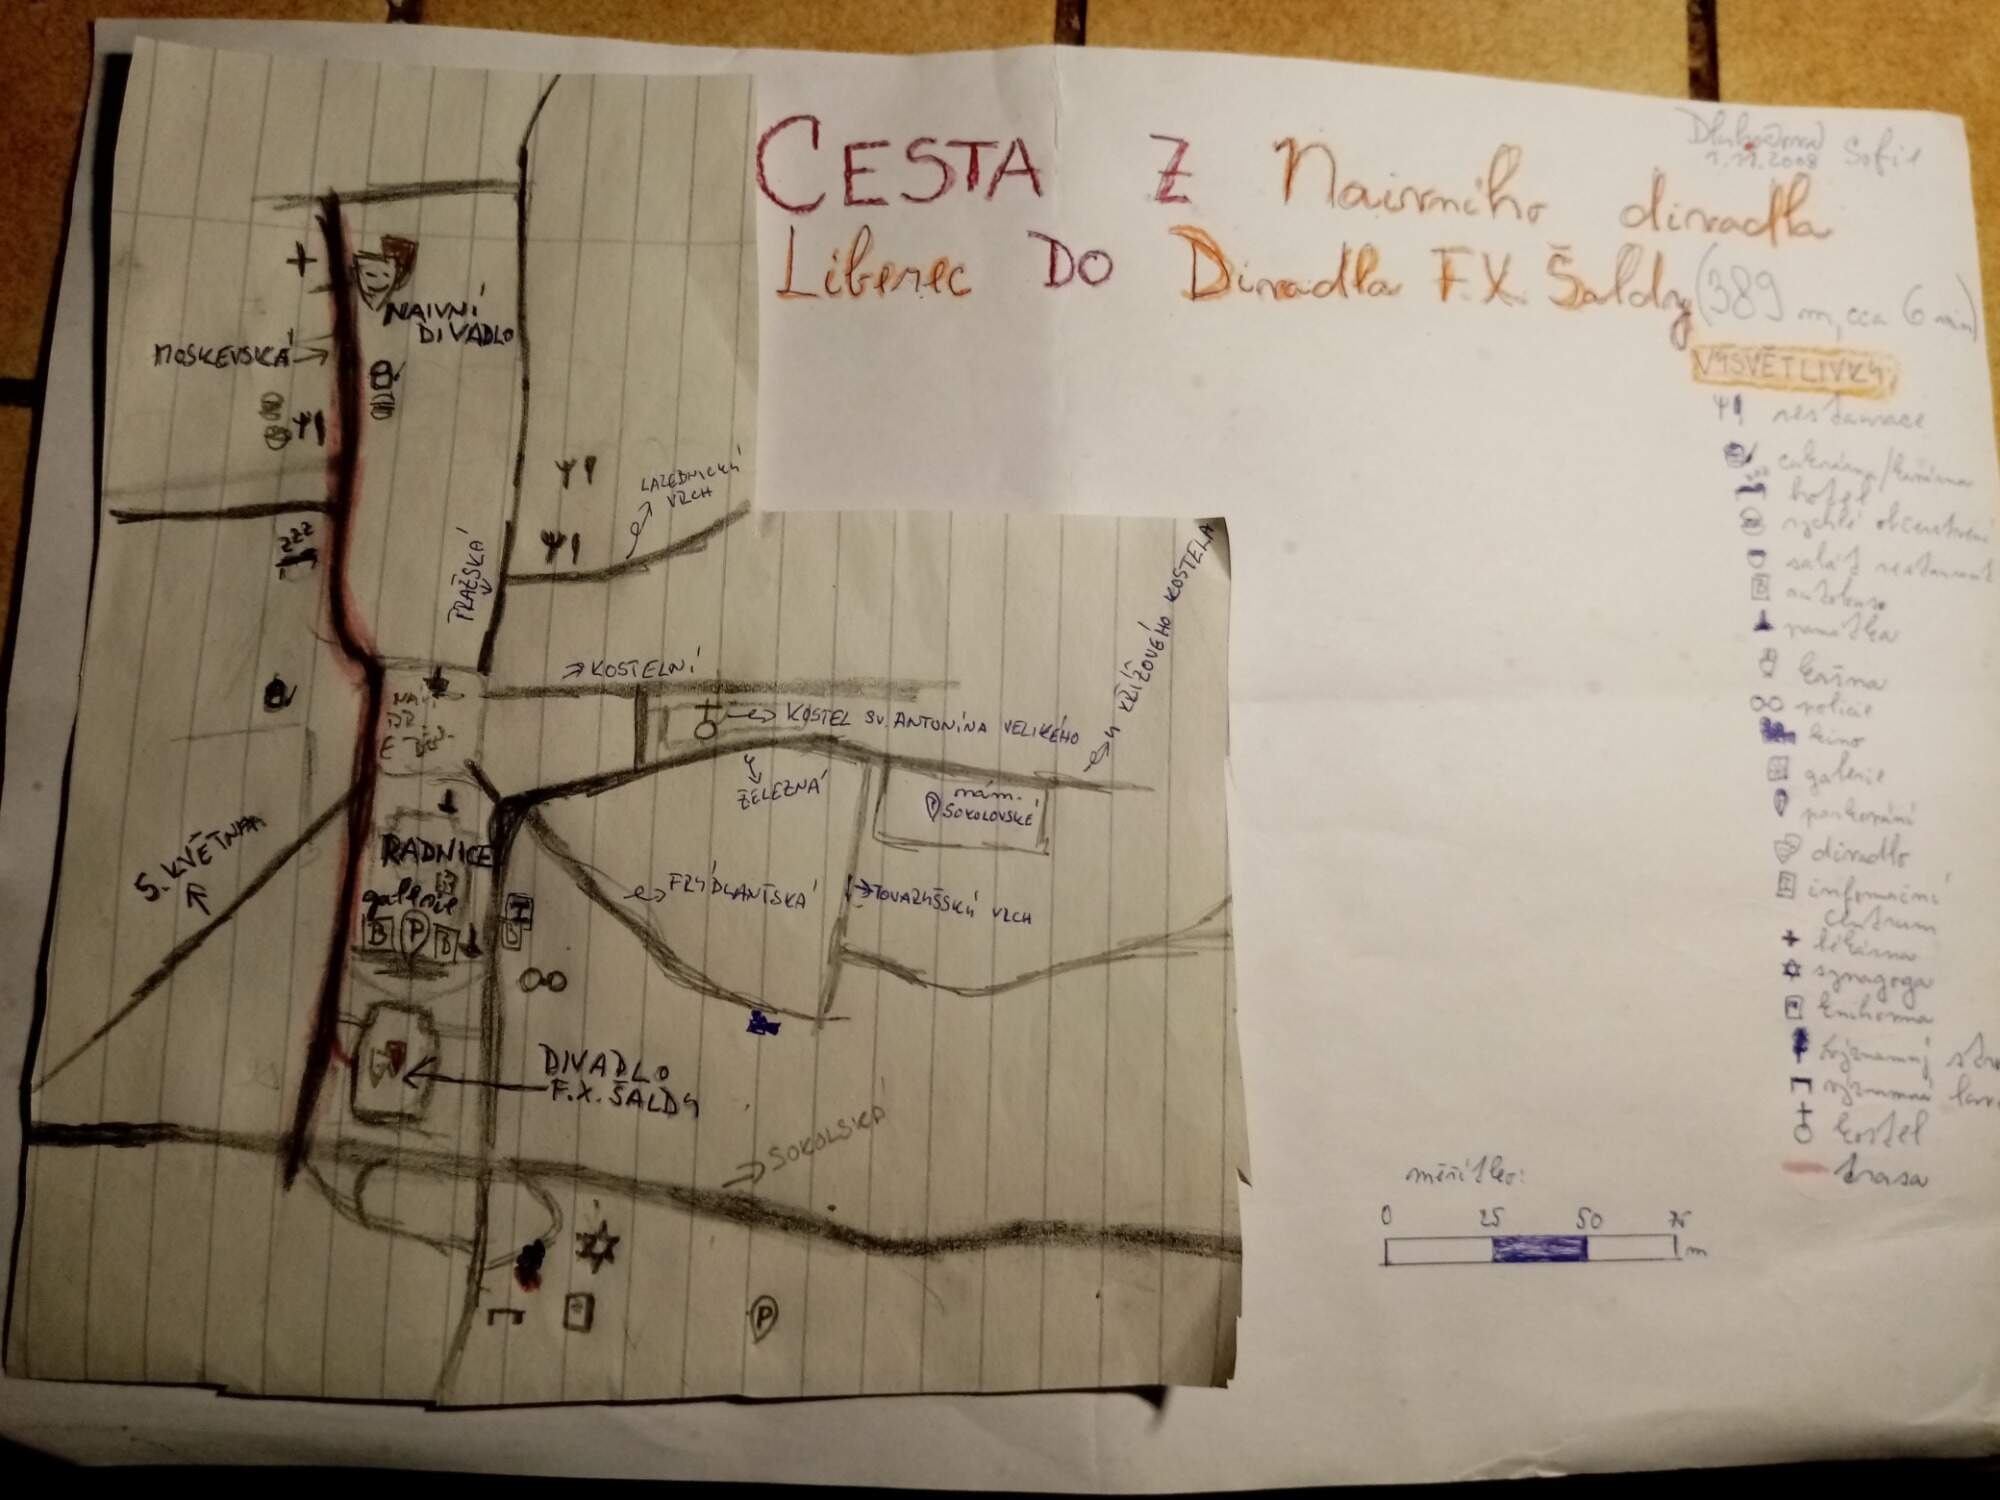 CESTA Z Naivního divadla
Liberec DO Divadla F.X. Šaldy (389 m, cca 6 min)
Sofie
1.11.2008
NAIVNÍ
DIVADLO
MOSKEVSKÁ
LAZEBNICKÝ
VRCH
PRAŽSKÁ
ZZZ
KOSTELNÍ
KOSTEL SV. ANTONÍNA VELIKÉHO
U KŘÍŽOVÉHO KOSTELA
NÁM.
DR.
E.
ŽELEZNÁ
nám.
SOKOLOVSKÉ
P
5. KVĚTNA
RADNICE
galerie
B P B
I
FRÝDLANTSKÁ
TOVARYŠSKÝ VRCH
DIVADLO
F.X. ŠALDY
SOKOLSKÁ
P
VYSVĚTLIVKY
restaurace
cukrárna/kavárna
hotel
rychlé občerstvení
salát restaurant
B autobus
památka
kašna
policie
kino
galerie
parkování
divadlo
I informační
centrum
lékárna
synagoga
knihovna
významný
významná
kostel
trasa
měřítko:
0 25 50 75
m